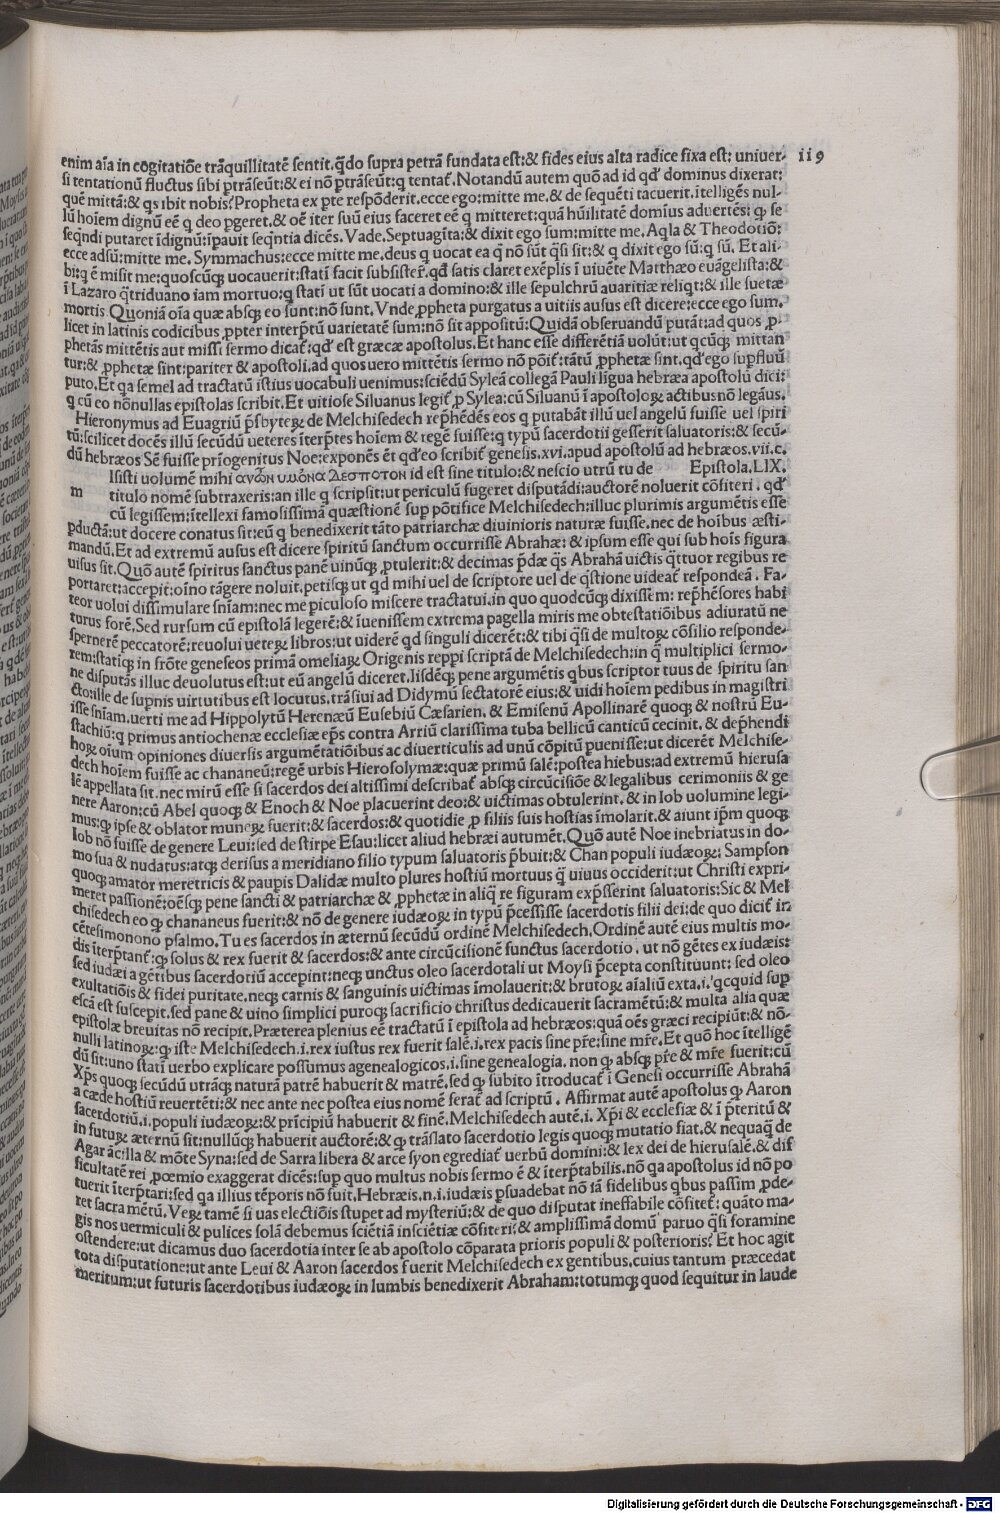 enim aīa in cogitatiōe trāquillitatē sentit.q̄do supra petrā fundata est:& fides eius alta radice fixa est: uniuer- 119
si tentationū fluctus sibi ptrāseūt:& ei nō ptrāseūt:q tentat̄.Notandū autem quō ad id qd' dominus dixerat:
quē mittā:& qs ibit nobis?Propheta ex pte respōderit.ecce ego:mitte me.& de sequēti tacuerit.ītelligēs nul-
lū hoiem dignū eē q deo pgeret.& oē iter suū eius saceret eē q mitteret:quā hūilitatē domīus aduertēs: ꝙ se
seqndi putaret īdignū:īpauit seqntia dicēs.Vade.Septuagīta:& dixit ego sum:mitte me.Aqla & Theodotiō:
ecce adsū:mitte me. Symmachus:ecce mitte me.deus q uocat ea q̄ nō sūt q̄si sit:& q dixit ego sū:q sū. Et ali-
bi:q ē misit me:quoscūqꝫ uocauerit:statī facit subsister̄.qd̄ satis claret exēplis ī uiuēte Matthæo euāgelista:&
ī Lazaro q̄triduano iam mortuo:q statī ut sūt uocati a domino:& ille sepulchrū auaritiæ reliqt:& ille suetæ
mortis Quoniā oīa quæ absqꝫ eo sunt:nō sunt.Vnde ꝓpheta purgatus a uitiis ausus est dicere:ecce ego sum.
licet in latinis codicibus ꝓpter interp̄tū uarietatē sum:nō sit appositū:Quidā obseruandū putāt:ad quos ꝓ-
phetās mittētis aut missi sermo dicat̄:qd' est græcæ apostolus.Et hanc esse differētiā uolūt:ut qcūqꝫ mittan
tur:& ꝓphetæ sint:pariter & apostoli.ad quos uero mittētis sermo nō pōit:tātū ꝓphetæ sint.qd' ego supfluū
puto.Et qa semel ad tractatū istius uocabuli uenimus:sciēdū Syleā collegā Pauli ligua hebræa apostolū dici:
q cū eo nōnullas epistolas scribit.Et uitiose Siluanus legit̄ ꝓ Sylea:cū Siluanū ī apostoloꝝ actibus nō legāus.
Hieronymus ad Euagriū p̄sbyteꝝ de Melchisedech rep̄hēdēs eos q putabāt illū uel angelū fuisse uel spiri
tū:scilicet docēs illū secūdū ueteres īterp̄tes hoīem & regē fuisse:q typū sacerdotii gesserit saluatoris:& secū-
dū hebræos Sē fuisse prīogenitus Noe:exponēs ēt qd'eo scribit̄ genesis.xvi.apud apostolū ad hebræos.vii.c.
Isisti uolumē mihi ανῶν υμόνα Δεσποτον id est sine titulo:& nescio utrū tu de Epistola.LIX.
m titulo nomē subtraxeris:an ille q scripsit:ut periculū fugeret disputādi:auctorē noluerit cōfiteri . qd'
cū legissem:ītellexi famosissimā quæstionē sup pōtifice Melchisedech:illuc plurimis argumētis esse
pductā:ut docere conatus sit:eū q benedixerit tāto patriarchæ diuinioris naturæ fuisse.nec de hoibus æsti-
mandū.Et ad extremū ausus est dicere spiritū sanctum occurrisse Abrahæ: & ipsum esse qui sub hoīs figura
uisus sit.Quō autē spiritus sanctus panē uinūqꝫ ꝓtulerit:& decimas p̄dæ q̄s Abrahā uictis q̄ttuor regibus re
portaret:accepit:oīno tāgere noluit.petisqꝫ ut qd mihi uel de scriptore uel de q̄stione uideat̄ respondeā . Fa-
teor uolui dissimulare sn̄iam:nec me piculoso miscere tractatui.in quo quodcūqꝫ dixissem: rep̄hēsores habi
turus forē.Sed rursum cū epistolā legerē:& īuenissem extrema pagella miris me obtestatiōibus adiuratū ne
spernerē peccatorē:reuolui ueteꝝ libros:ut uiderē qd singuli dicerēt:& tibi q̄si de multoꝝ cōsilio responde-
rem:statiqꝫ in frōte geneseos primā omeliaꝝ Origenis reppi scriptā de Melchisedech:in q̄ multiplici sermo-
ne disputās illuc deuolutus est:ut eū angelū diceret.Iisdēqꝫ pene argumētis qbus scriptor tuus de spiritu san
cto:ille de supnis uirtutibus est locutus.trāsiui ad Didymū sectatorē eius:& uidi hoiem pedibus in magistri
isse sn̄iam.uerti me ad Hippolytū Herenæū Eusebiū Cæsarien. & Emisenū Apollinarē quoqꝫ & nostrū Eu-
stachiū:q primus antiochenæ ecclesiæ ep̄s contra Arriū clarissima tuba bellicū canticū cecinit. & dep̄hendi
hoꝝ oīum opiniones diuersis argumētatiōibus ac diuerticulis ad unū cōpitū puenisse:ut dicerēt Melchise-
dech hoiem fuisse ac chananeū:regē urbis Hierosolymæ:quæ primū salē:postea hiebus:ad extremū hierusa
lē appellata sit.nec mirū esse si sacerdos dei altissimi describat̄ absqꝫ circūcisiōe & legalibus cerimoniis & ge
nere Aaron:cū Abel quoqꝫ & Enoch & Noe placuerint deo:& uictimas obtulerint. & in Iob uolumine legi-
mus:ꝙ ipse & oblator muneꝝ fuerit:& sacerdos:& quotidie ꝓ filiis suis hostias īmolarit.& aiunt ip̄m quoqꝫ
Iob nō fuisse de genere Leui:sed de stirpe Esau:licet aliud hebræi autumēt.Quō autē Noe inebriatus in do-
mo sua & nudatus:atqꝫ derisus a meridiano filio typum saluatoris p̄buit:& Chan populi iudæoꝝ: Sampson
quoqꝫ amator meretricis & paupis Dalidæ multo plures hostiū mortuus q̄ uiuus occiderit:ut Christi expri-
meret passionē:oēsqꝫ pene sancti & patriarchæ & ꝓphetæ in aliq̄ re figuram exp̄sserint saluatoris:Sic & Mel
chisedech eo ꝙ chananeus fuerit:& nō de genere iudæoꝝ in typū p̄cessisse sacerdotis filii dei:de quo dicit̄ in
cētesimonono psalmo.Tu es sacerdos in æternū secūdū ordinē Melchisedech.Ordinē autē eius multis mo-
dis īterp̄tant̄:ꝙ solus & rex fuerit & sacerdos:& ante circūcisionē functus sacerdotio . ut nō gētes ex iudæis:
sed iudæi a gētibus sacerdotiū accepint:neqꝫ unctus oleo sacerdotali ut Moysi p̄cepta constituunt: sed oleo
exultatiōis & fidei puritate.neqꝫ carnis & sanguinis uictimas īmolauerit:& brutoꝝ aīaliū exta.i.'qcquid sup
escā est suscepit.sed pane & uino simplici puroqꝫ sacrificio christus dedicauerit sacramētū:& multa alia quæ
epistolæ breuitas nō recipit.Præterea plenius eē tractatū ī epistola ad hebræos:quā oēs græci recipiūt:& nō-
nulli latinoꝝ:ꝙ iste Melchisedech.i.rex iustus rex fuerit salē.i.rex pacis sine pr̄e:sine mr̄e.Et quō hoc ītelligē
dū sit:uno statī uerbo explicare possumus agenealogicos.i.sine genealogia. non ꝙ absqꝫ pr̄e & mr̄e fuerit:cū
Xp̄s quoqꝫ secūdū utrāqꝫ naturā patrē habuerit & matrē.sed ꝙ subito ītroducat̄ ī Genesi occurrisse Abrahā
a cæde hostiū reuertēti:& nec ante nec postea eius nomē ferat̄ ad scriptū . Affirmat autē apostolus ꝙ Aaron
sacerdotiū.i.populi iudæoꝝ:& prīcipiū habuerit & finē.Melchisedech autē.i. Xp̄i & ecclesiæ & ī p̄teritū &
in futuꝝ æternū sit:nullūqꝫ habuerit auctorē:& ꝙ trāslato sacerdotio legis quoqꝫ mutatio fiat.& nequaq̄ de
Agar ācilla & mōte Syna:sed de Sarra libera & arce syon egrediat̄ uerbū domini:& lex dei de hierusalē.& dif
ficultatē rei ꝓœmio exaggerat dicēs:sup quo multus nobis sermo ē & īterp̄tabilis.nō qa apostolus id nō po
tuerit īterp̄tari:sed qa illius tēporis nō fuit.Hebræis.n.i.iudæis psuadebat nō iā fidelibus qbus passim ꝓde-
ret sacramētū.Veꝝ tamē si uas electiōis stupet ad mysteriū:& de quo disputat ineffabile cōfitet̄: quāto ma-
gis nos uermiculi & pulices solā debemus sciētiā insciētiæ cōfiteri:& amplissimā domū paruo q̄si foramine
ostendere:ut dicamus duo sacerdotia inter se ab apostolo cōparata prioris populi & posterioris? Et hoc agit
tota disputatione:ut ante Leui & Aaron sacerdos fuerit Melchisedech ex gentibus.cuius tantum præcedat
meritum:ut futuris sacerdotibus iudæoꝝ in lumbis benedixerit Abraham:totumqꝫ quod sequitur in laude
Digitalisierung gefördert durch die Deutsche Forschungsgemeinschaft - DFG